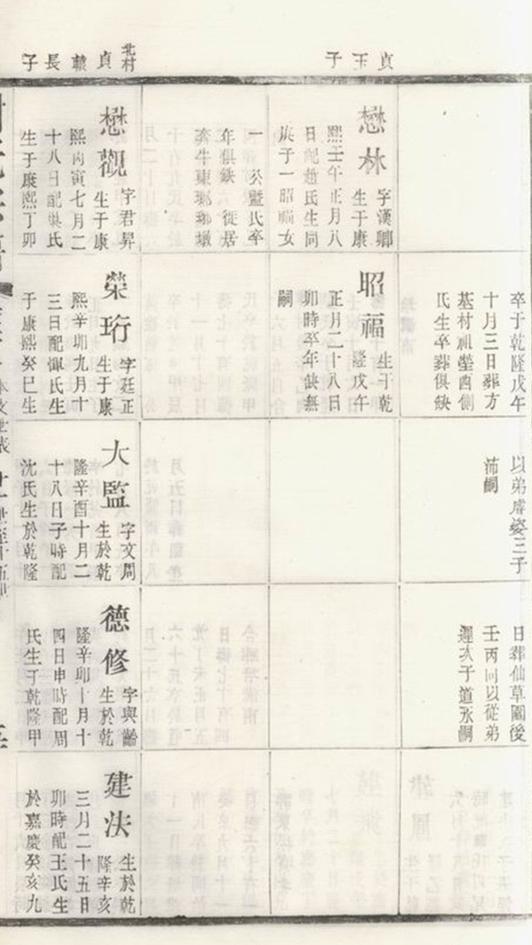 貞玉子
北村
貞轅長子
卒于乾隆戊午
十月三日葬方
基村祖塋酉側
氏生卒葬俱缺
以弟膚姿三子
沛嗣
日葬仙草園後
壬丙向以從弟
遲次子道永嗣
懋林
字漢卿
生于康
熙壬午正月八
日配趙氏生同
庚子一昭福女
一 公暨氏卒
年俱缺 徙居
牽牛東琊琊墩
昭福
生于乾
隆戊午
正月二十八日
卯時卒年缺無
嗣
懋觀
字君昇
生于康
熙丙寅七月二
十八日配吳氏
生于康熙丁卯
榮珩
字廷正
生于康
熙辛卯九月十
三日配惲氏生
于康熙癸巳生
大監
字文周
生於乾
隆辛酉十月二
十八日子時配
沈氏生於乾隆
德修
字與齡
生於乾
隆辛卯十月十
四日申時配周
氏生于乾隆甲
建法
生於乾
隆辛亥
三月二十五日
卯時配王氏生
於嘉慶癸亥九